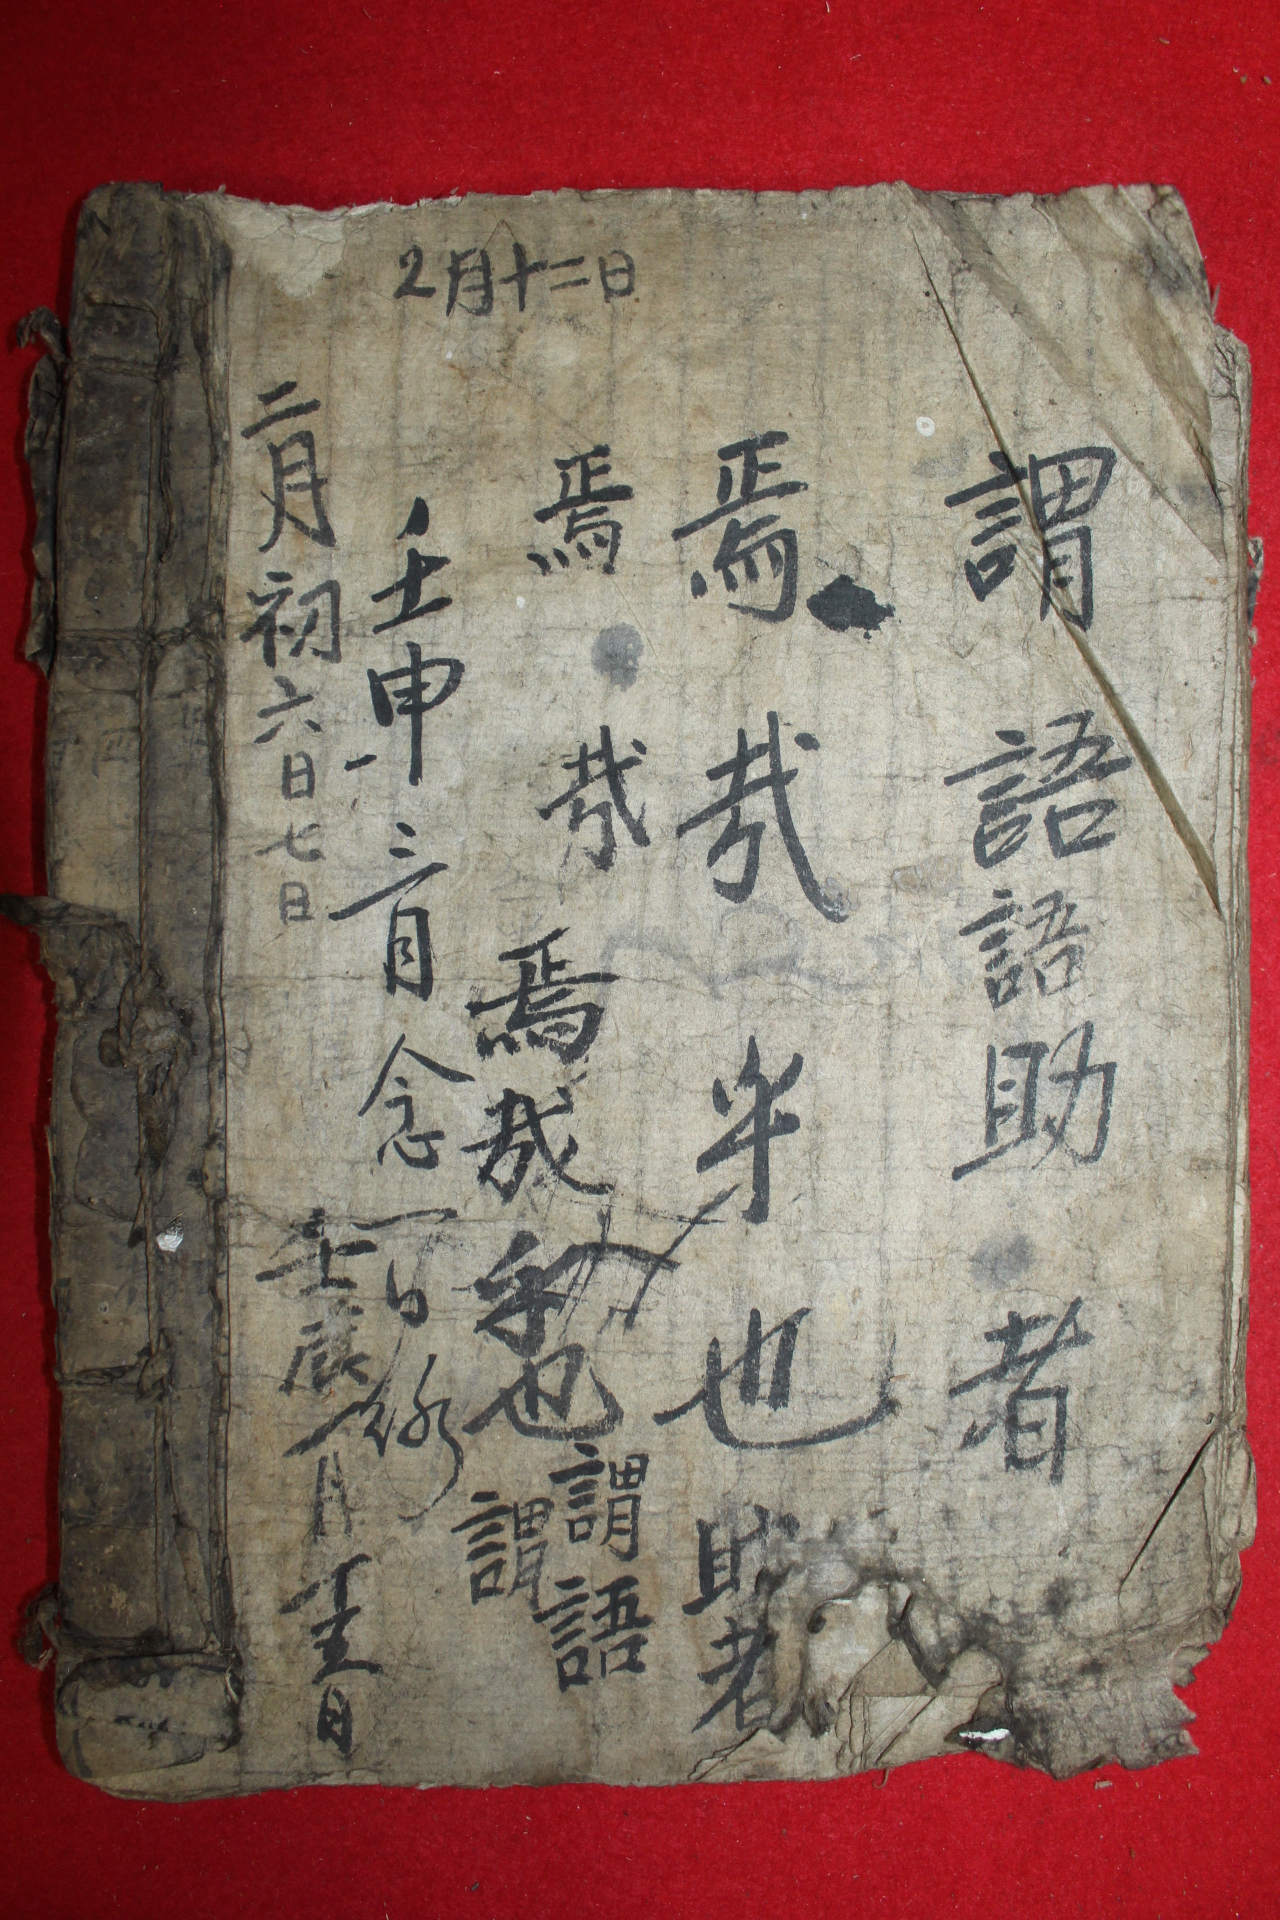 2月十二日
謂語語助者
焉哉乎也助者
焉哉
焉哉乎也謂
謂語
壬申三月念一日
二月初六日七日
壬辰